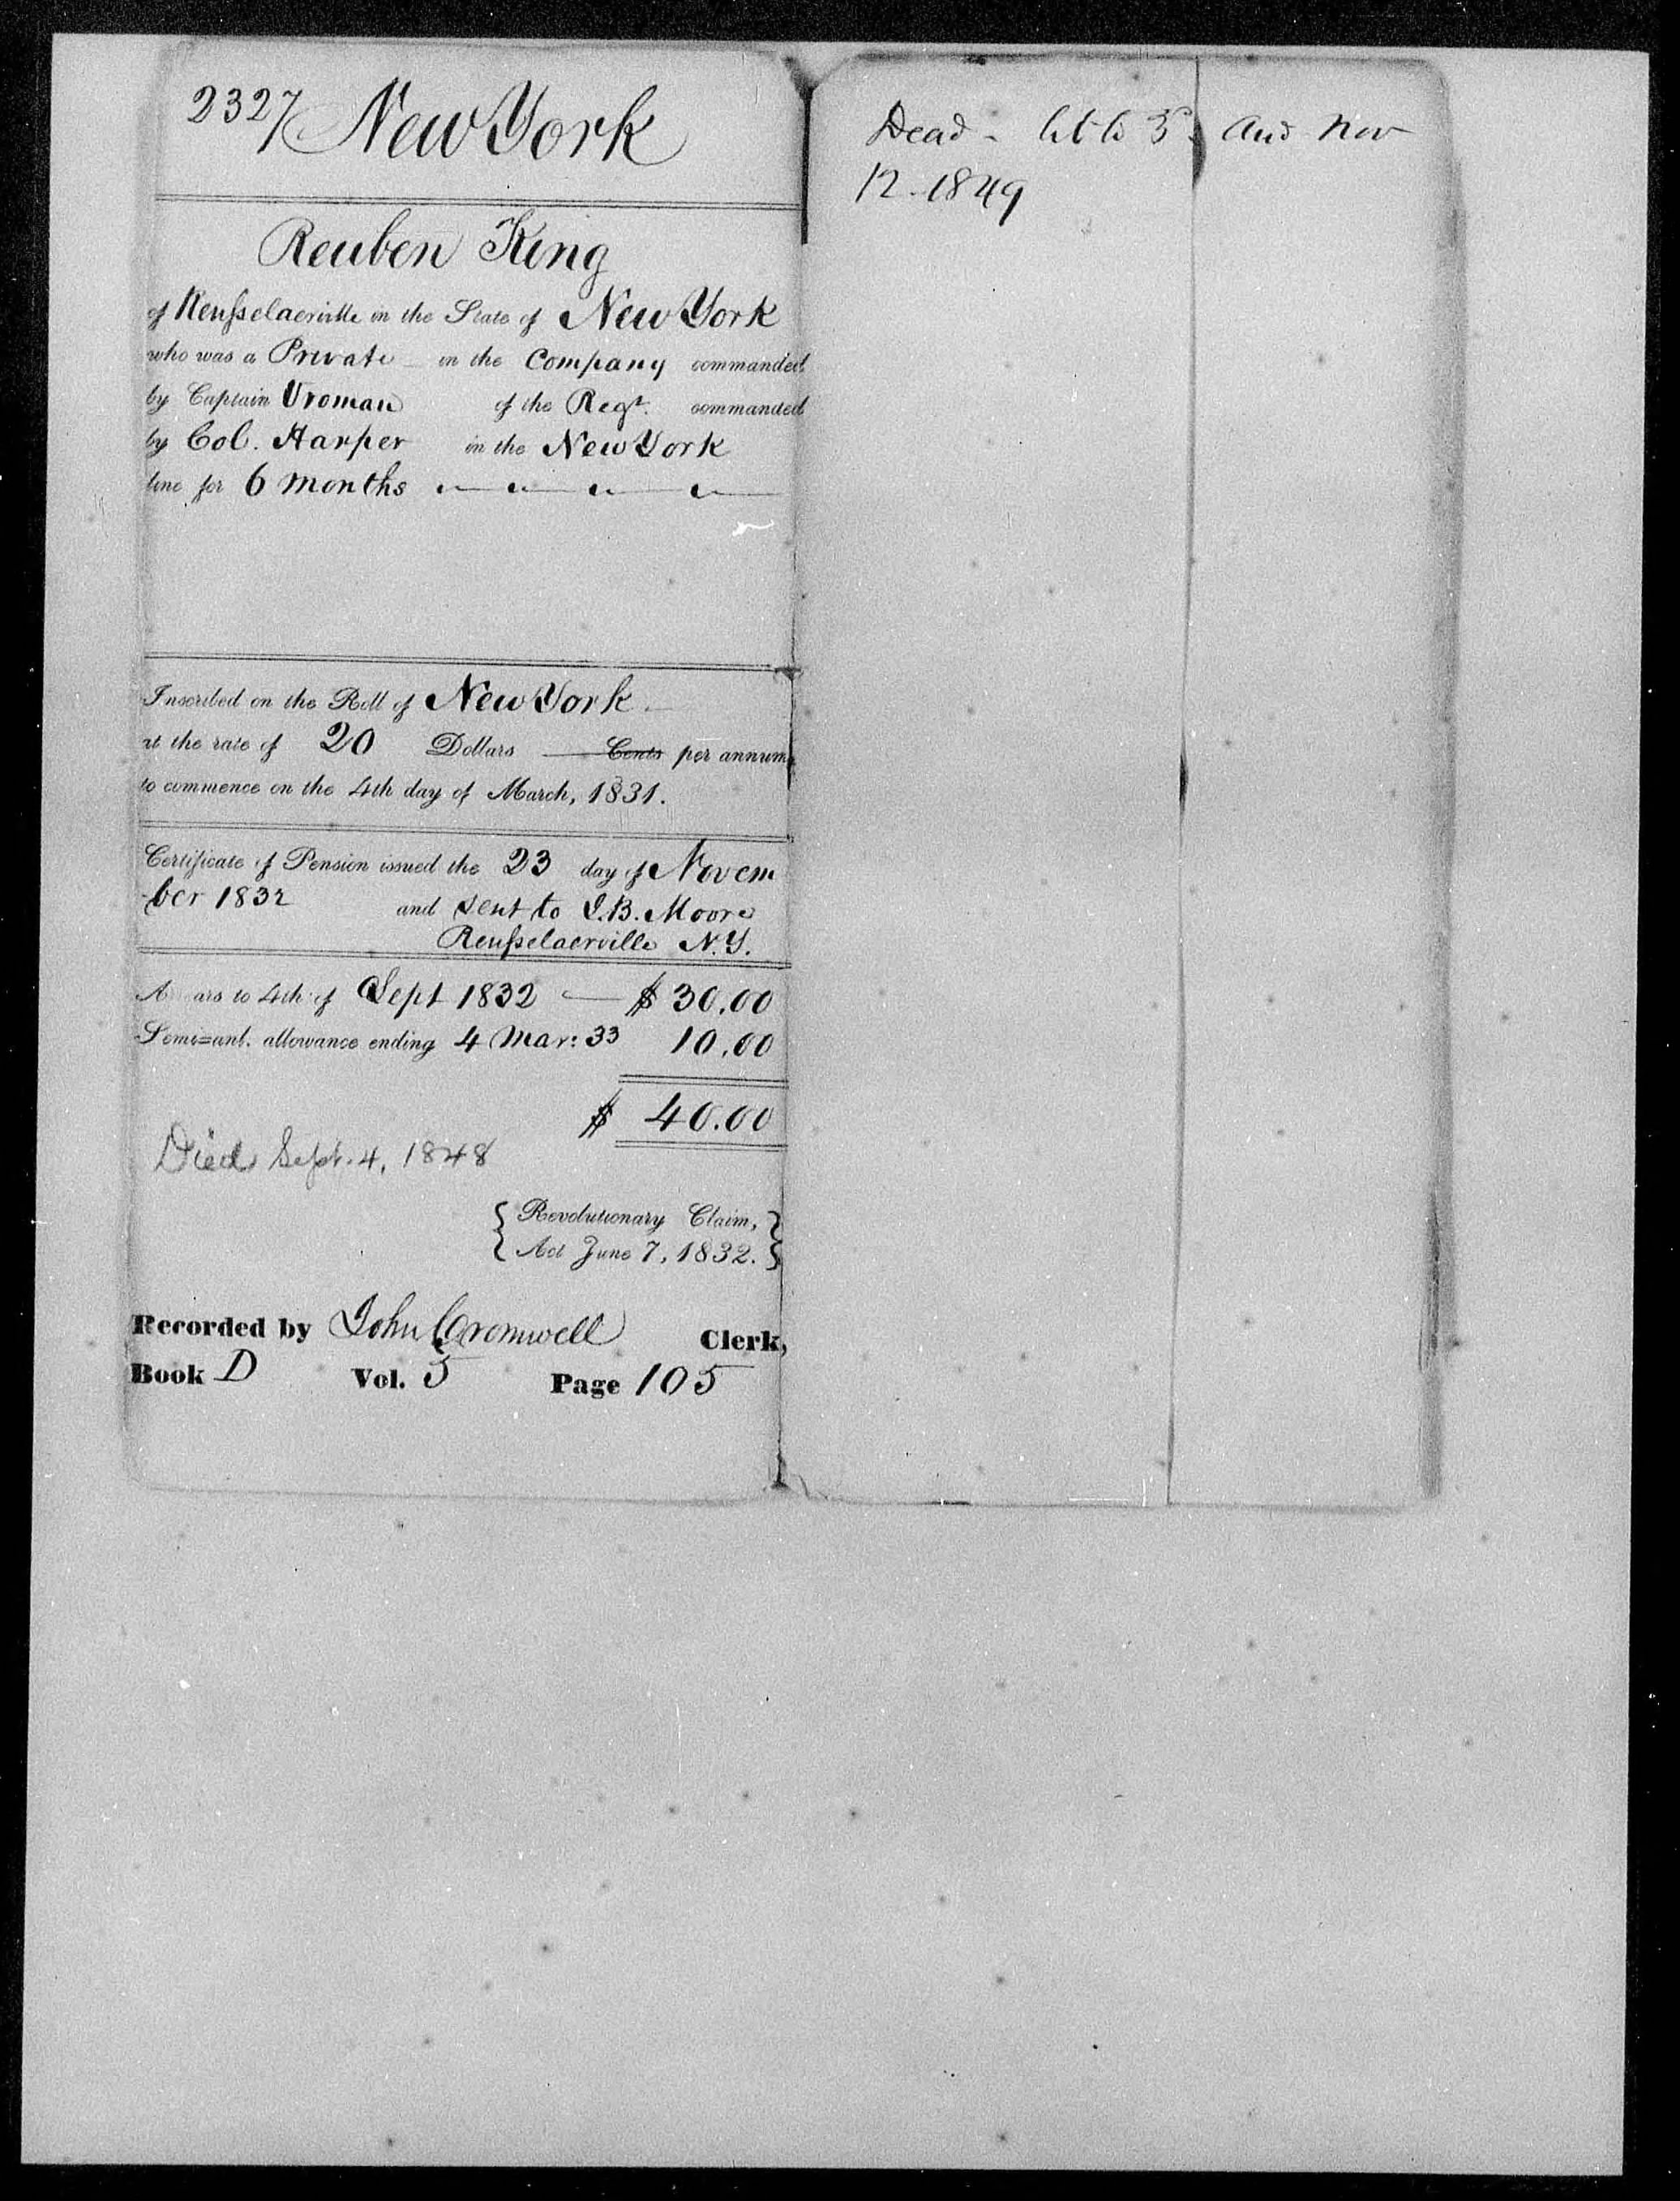 2327 New York
Reuben King
of Rensselaerville in the State of New York
who was a Private in the Company commanded
by Captain Vroman of the Regt. commanded
by Col. Harper in the New York
line for 6 months
Inscribed on the Roll of New York
at the rate of 20 Dollars Cents per annum,
to commence on the 4th day of March, 1831.
Certificate of Pension issued the 23 day of Novem
-ber 1832 and sent to I.B. Moore
Rensselaerville N.Y.
Arrears to 4th of Sept 1832 — $ 30.00
Semi=anl. allowance ending 4 Mar: 33 10.00
$ 40.00
Died Sept. 4, 1848
{ Revolutionary Claim, }
{ Act June 7, 1832. }
Recorded by John Cromwell Clerk,
Book D Vol. 5 Page 105
Dead - and Nov
12. 1849